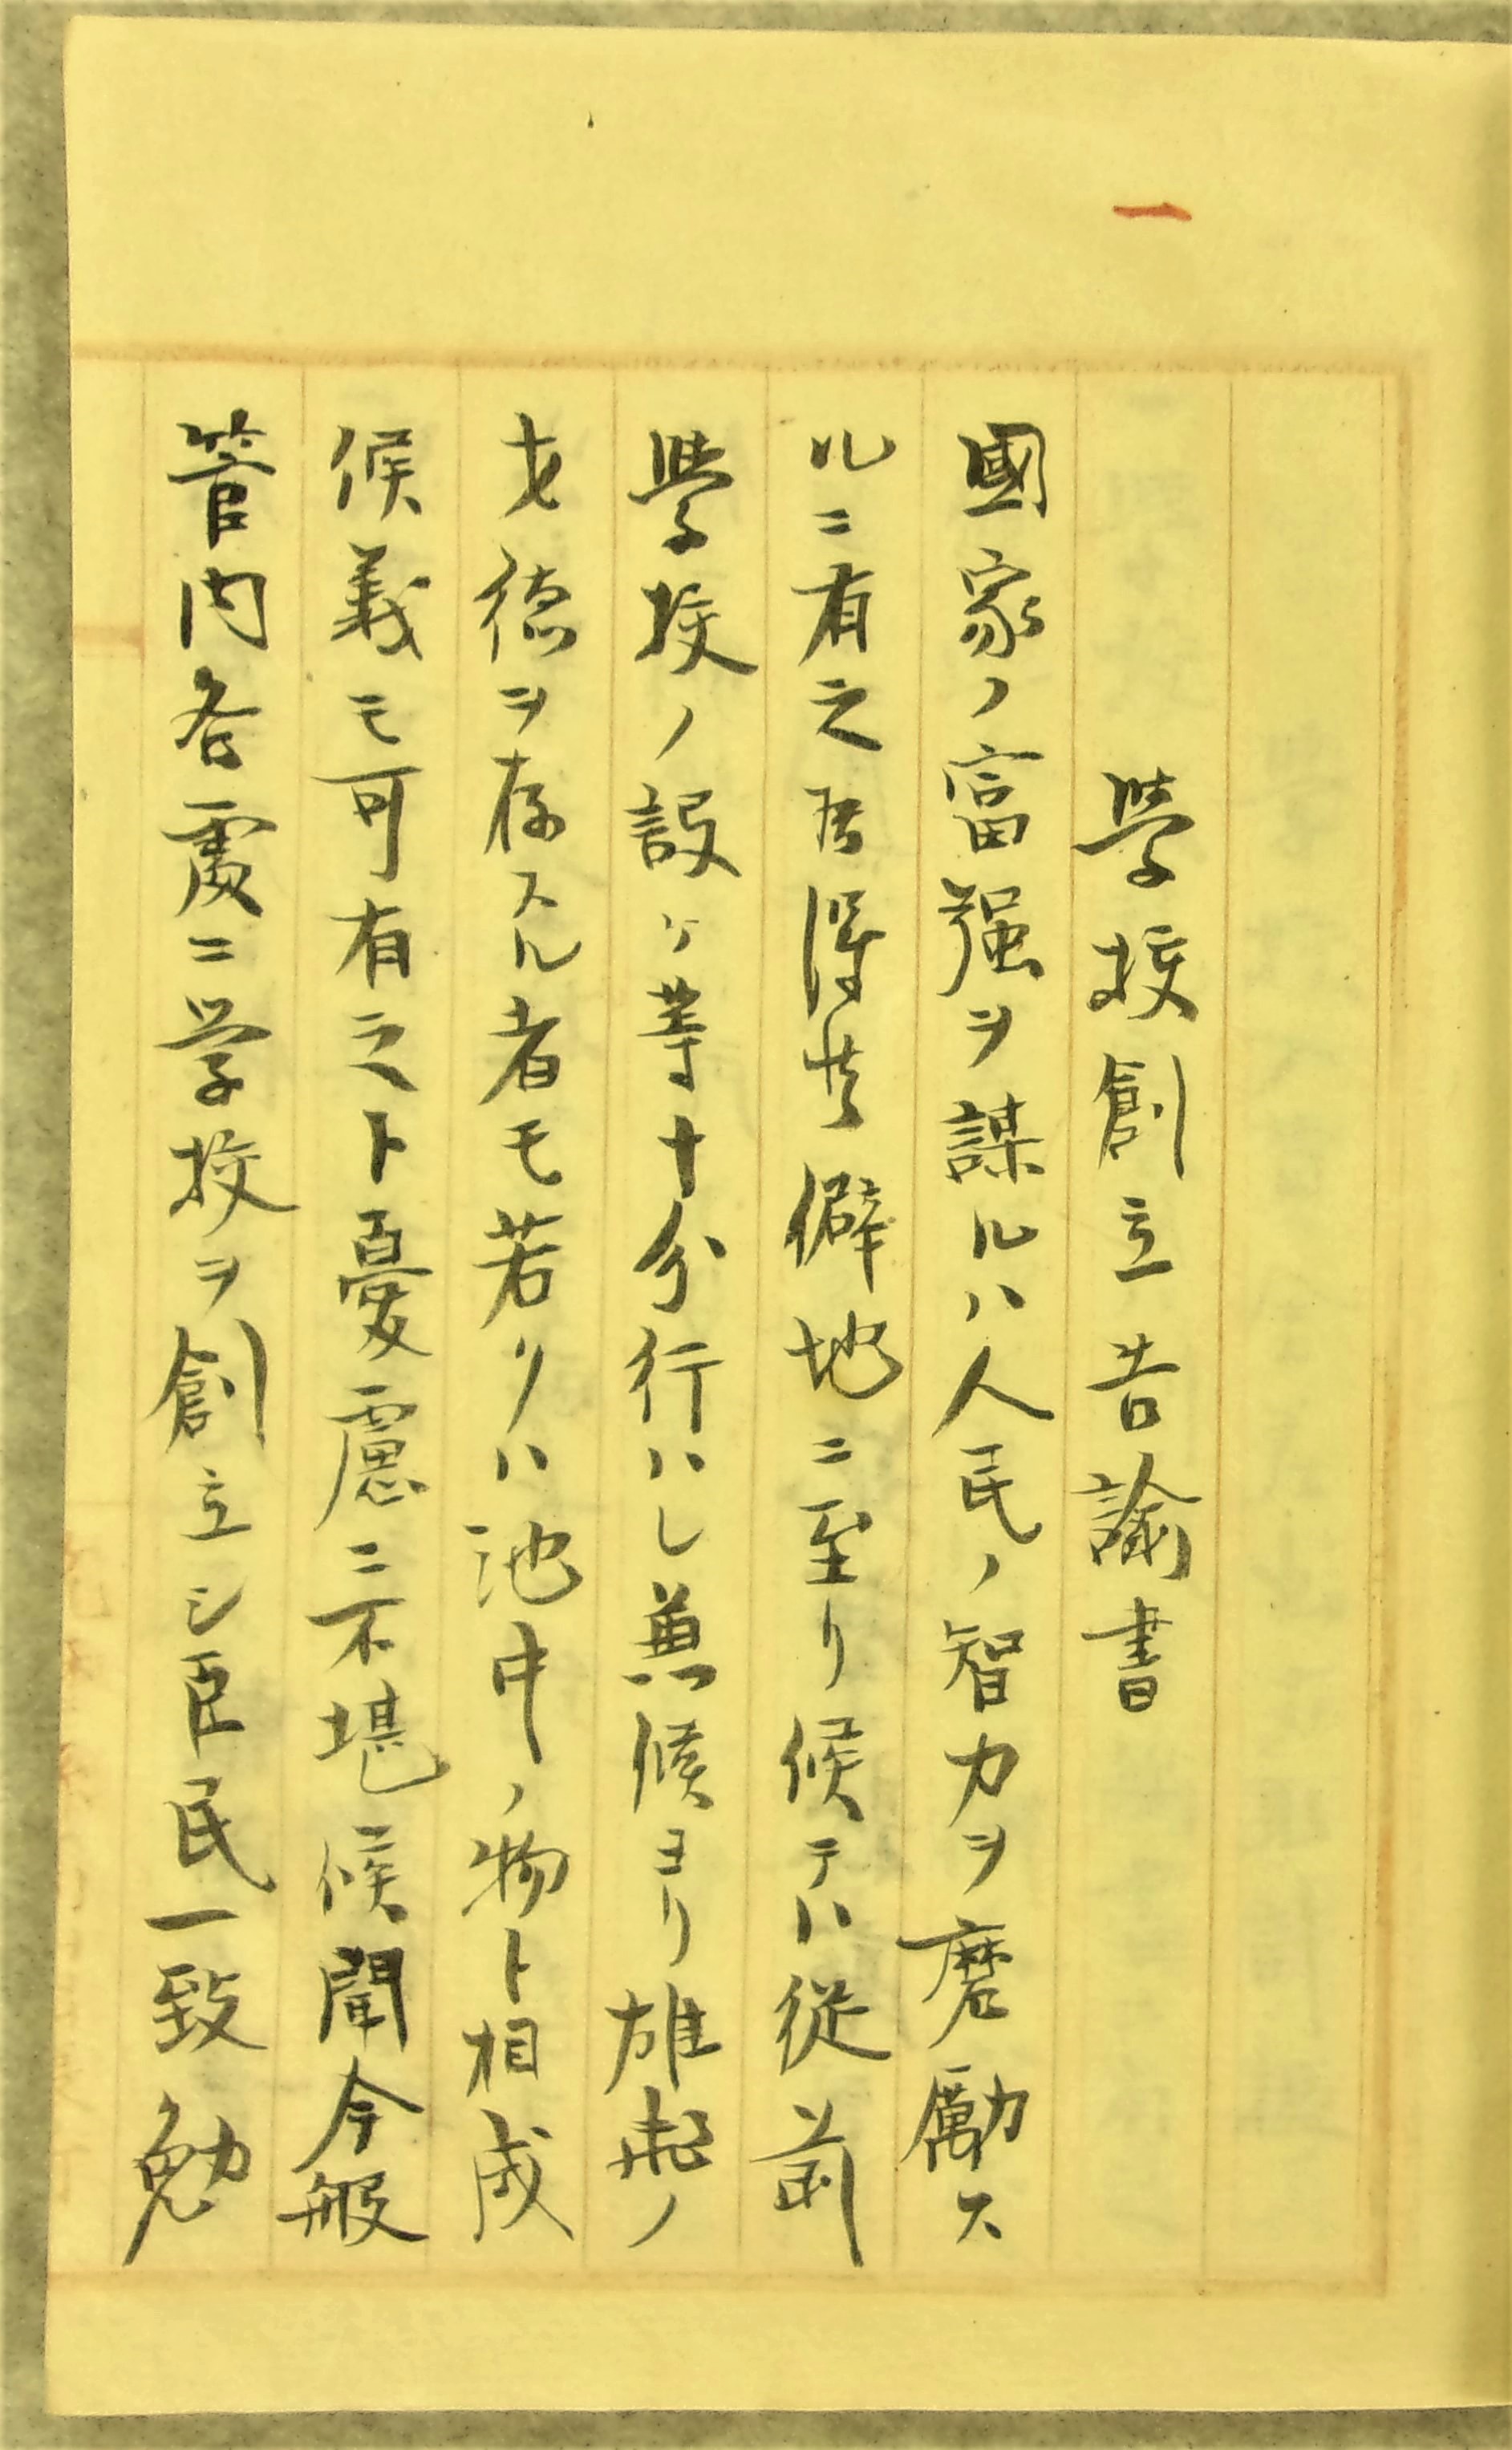 一
學校創立告諭書
國家ノ富强ヲ謀ルハ人民ノ智力ヲ磨勵ス
ルニ有之僻地ニ至リ候テハ従前
學校ノ設ケ等十分行ハレ兼候ヨリ雄飛ノ
才徳ヲ存スル者モ若クハ池中ノ物ト相成
候義モ可有之ト憂慮ニ不堪候間今般
管内各處ニ学校ヲ創立シ臣民一致勉